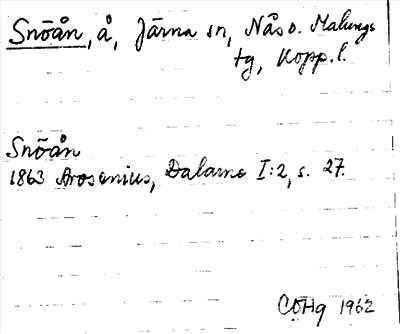 Snöån, å, Järna sn, Nås o. Malungs
tg, Kopp. l.
Snöån
1863 Arosenius, Dalarne I:2, s. 27.
COHg 1962